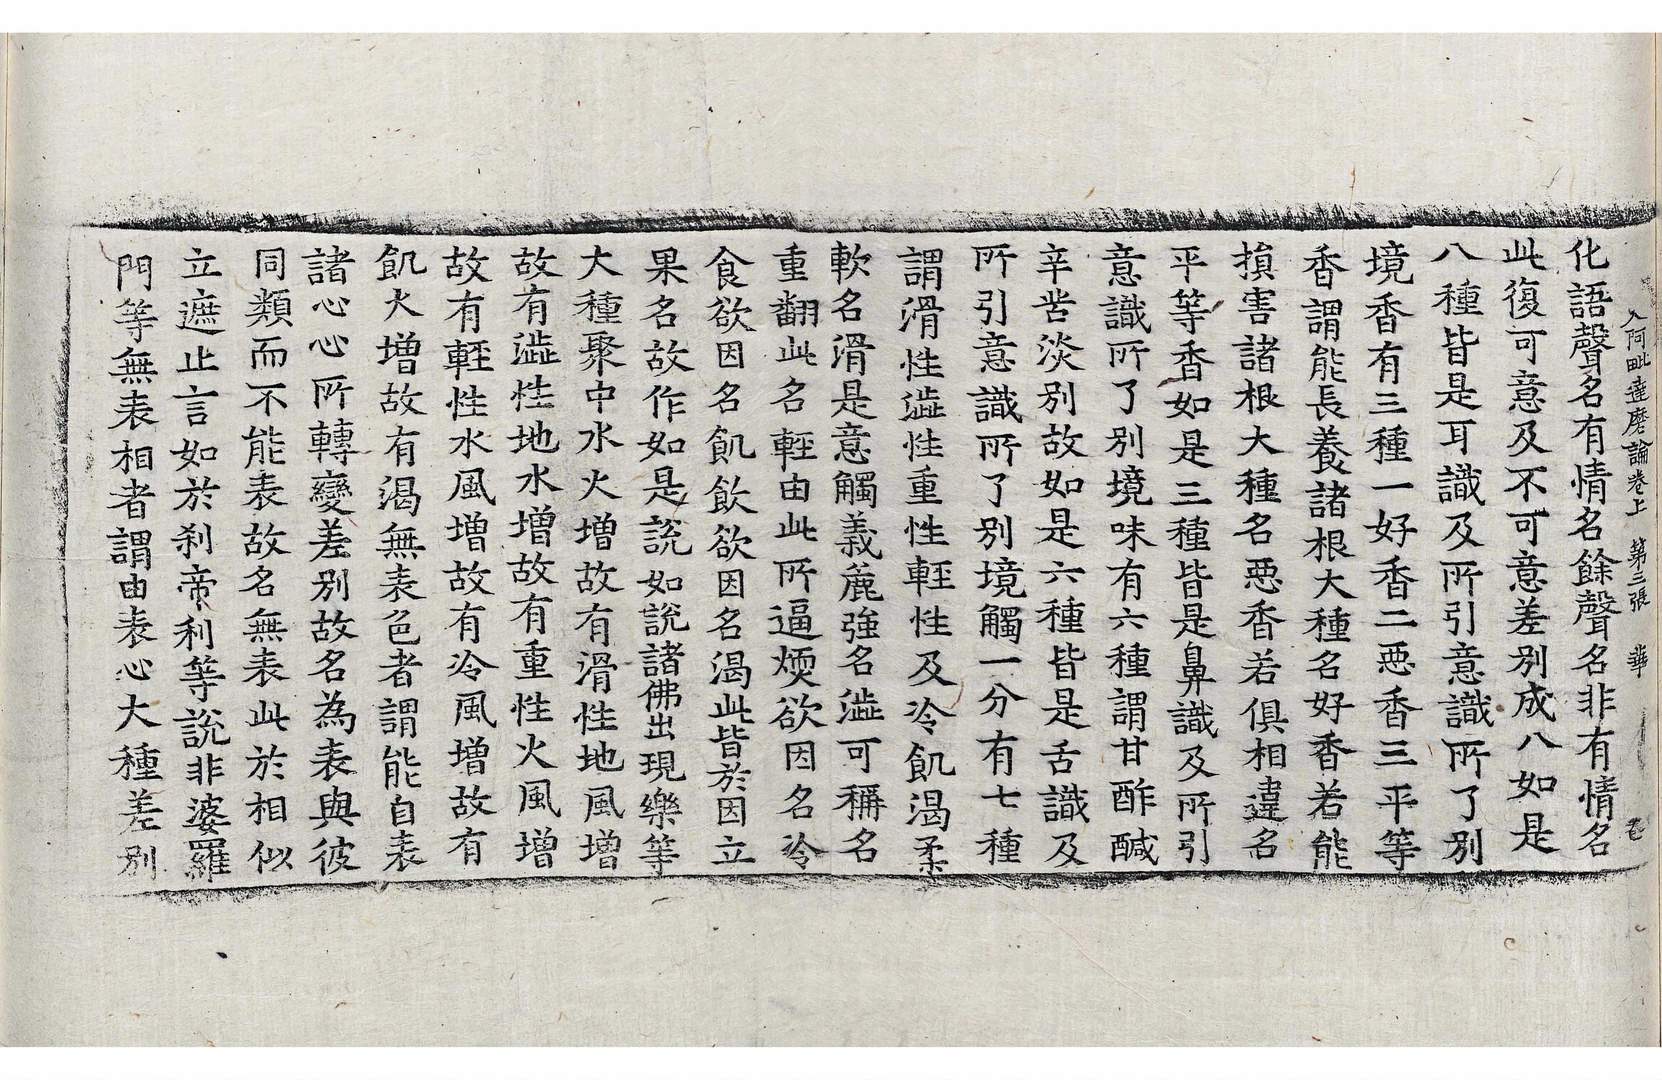 入阿毗達磨論卷上 第三張 華
化語聲名有情名餘聲名非有情名
此復可意及不可意差別成八如是
八種皆是耳識及所引意識所了別
境香有三種一好香二惡香三平等
香謂能長養諸根大種名好香若能
損害諸根大種名惡香若俱相違名
平等香如是三種皆是鼻識及所引
意識所了別境味有六種謂甘酢醎
辛苦淡別故如是六種皆是舌識及
所引意識所了別境觸一分有七種
謂滑性澁性重性輕性及冷飢渴柔
軟名滑是意觸義麁強名澁可稱名
重翻此名輕由此所逼煗欲因名冷
食欲因名飢飲欲因名渴此皆於因立
果名故作如是說如說諸佛出現樂等
大種聚中水火增故有滑性地風增
故有澁性地水增故有重性火風增
故有輕性水風增故有冷風增故有
飢火增故有渴無表色者謂能自表
諸心心所轉變差別故名為表與彼
同類而不能表故名無表此於相似
立遮止言如於刹帝利等說非婆羅
門等無表相者謂由表心大種差別